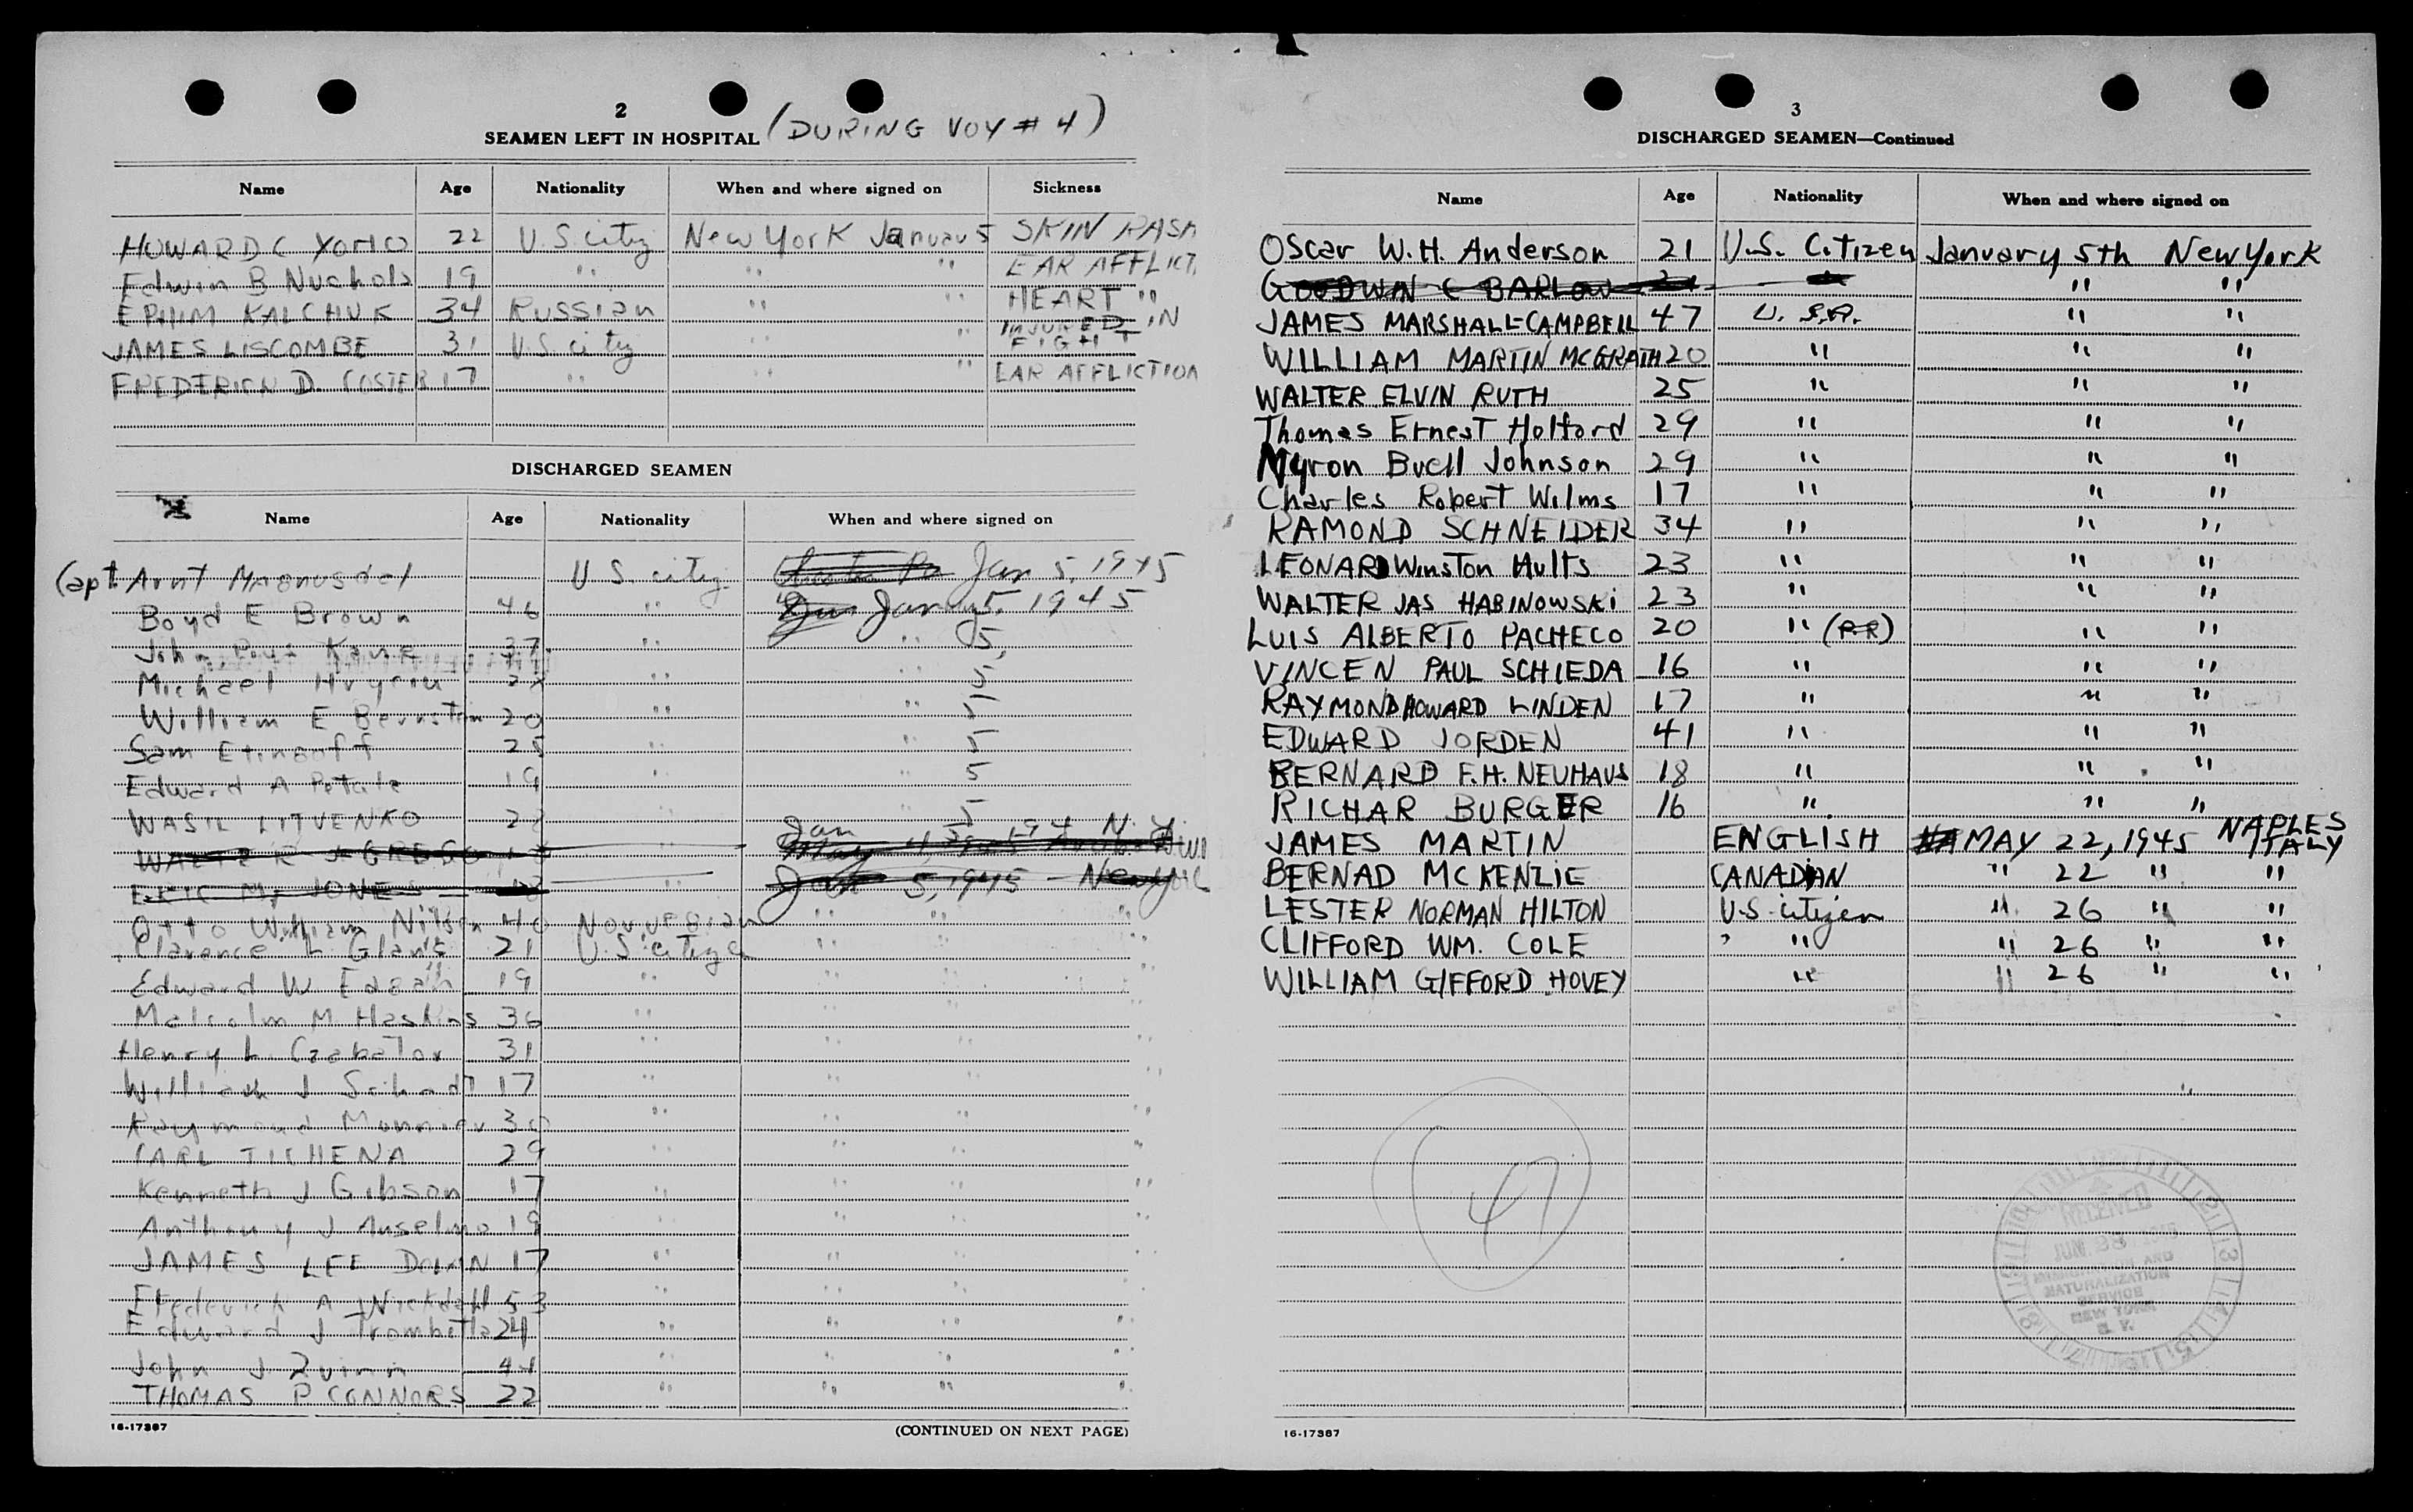 2
SEAMEN LEFT IN HOSPITAL (DURING VOY # 4)
Name Age Nationality When and where signed on Sickness
HOWARD C 22 U.S. citz New York January 5 SKIN RASH
Edwin B Nuchols 19 " " " EAR AFFLICT.
EPHIM KALCHUK 34 Russian " " HEART "
JAMES LISCOMBE 31 U.S. citz " " INJURED IN FIGHT
FREDERICK D COSTER 17 " " " EAR AFFLICTION
DISCHARGED SEAMEN
Name Age Nationality When and where signed on
Capt. Arnt Magnusdal U S. citz Jan 5, 1945
Boyd E Brown 46 " January 5, 1945
John Kane 37 " " 5,
Michael " " 5
William E Bernstein 20 " " 5
Sam Etingoff 25 " " 5
Edward A 19 " " 5
WASIL LITVENKO " " 5
Jan N. Y.
ERIC M. JONES " Jan 5, 1945 - New York
Otto William Nilsen 40 Norwegian " " "
Clarence L Glanz 21 U.S. citizen " " "
Edward W Edgar 19 " " " "
Malcolm M Haskins 36 " " " "
Henry L. Czabator 31 " " " "
William J Schadt 17 " " " "
Raymond " " " "
CARL TICHENA 29 " " " "
Kenneth J Gibson 17 " " " "
Anthony J Anselmo 19 " " " "
JAMES LEE 17 " " " "
Frederick A 53 " " " "
Edward J Trombetta 24 " " " "
John J Quinn 44 " " " "
THOMAS P CONNORS 22 " " " "
16-17387 (CONTINUED ON NEXT PAGE)
3
DISCHARGED SEAMEN—Continued
Name Age Nationality When and where signed on
Oscar W.H. Anderson 21 U.S. Citizen January 5th New York
GOODWIN C BARLOW 21 " " "
JAMES MARSHALL-CAMPBELL 47 U.S.A. " "
WILLIAM MARTIN MCGRATH 20 " " "
WALTER ELVIN RUTH 25 " " "
Thomas Ernest Holford 29 " " "
Myron Buell Johnson 29 " " "
Charles Robert Wilms 17 " " "
RAMOND SCHNEIDER 34 " " "
LEONARD Winston Hults 23 " " "
WALTER JAS HABINOWSKI 23 " " "
LUIS ALBERTO PACHECO 20 " (P.R) " "
VINCEN PAUL SCHIEDA 16 " " "
RAYMOND HOWARD LINDEN 17 " " "
EDWARD JORDEN 41 " " "
BERNARD F.H. NEUHAUS 18 " " "
RICHAR BURGER 16 " " "
JAMES MARTIN ENGLISH MAY 22, 1945 NAPLES ITALY
BERNAD MCKENZIE CANADIAN " 22 " "
LESTER NORMAN HILTON U.S. citizen " 26 " "
CLIFFORD WM. COLE " " 26 " "
WILLIAM GIFFORD HOVEY " " 26 " "
47
RECEIVED
JUN 28 1945
IMMIGRATION AND
NATURALIZATION
SERVICE
NEW YORK
N. Y.
16-17387